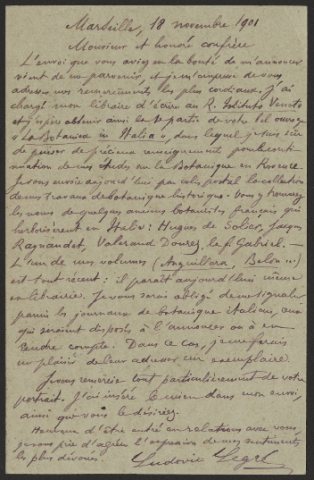 Marseille, 18 novembre 1901
Monsieur et honoré confrère
L'envoi que vous aviez eu la bonté de m'annoncer
vient de me parvenir, et je m'empresse de vous
adresser mes remerciements les plus cordiaux. J'ai
chargé mon libraire d'écrire au R. Istituto Veneto
et j'espère obtenir ainsi la 1e partie de votre bel ouvrage
« La Botanica in Italia », dans lequel je suis sûr
de puiser de précieux renseignements pour la conti-
nuation de mes études sur la Botanique en Provence.
Je vous envoie aujourd'hui par colis postal la collection
de mes travaux de botanique historique : vous y trouverez
les noms de quelques anciens botanistes français qui
herborisèrent en Italie : Hugues de Solier, Jacques
Raynaudet, Valerand Dourez, le fr Gabriel. —
L'un de mes volumes (Anguillara, Belon ..)
est tout récent : il paraît aujourd'hui même
en librairie. Je vous serai obligé de me signaler
parmi les journaux de botanique italiens, ceux
qui seraient disposés à l'annoncer ou à en
rendre compte. Dans ce cas, je me ferais
un plaisir de leur adresser un exemplaire.
Je vous remercie tout particulièrement de votre
portrait. J'ai inséré le mien dans mon envoi,
ainsi que vous le désiriez.
Heureux d'être entré en relations avec vous,
je vous prie d'agréer l'expression de mes sentiments
les plus dévoués.
Ludovic Legré